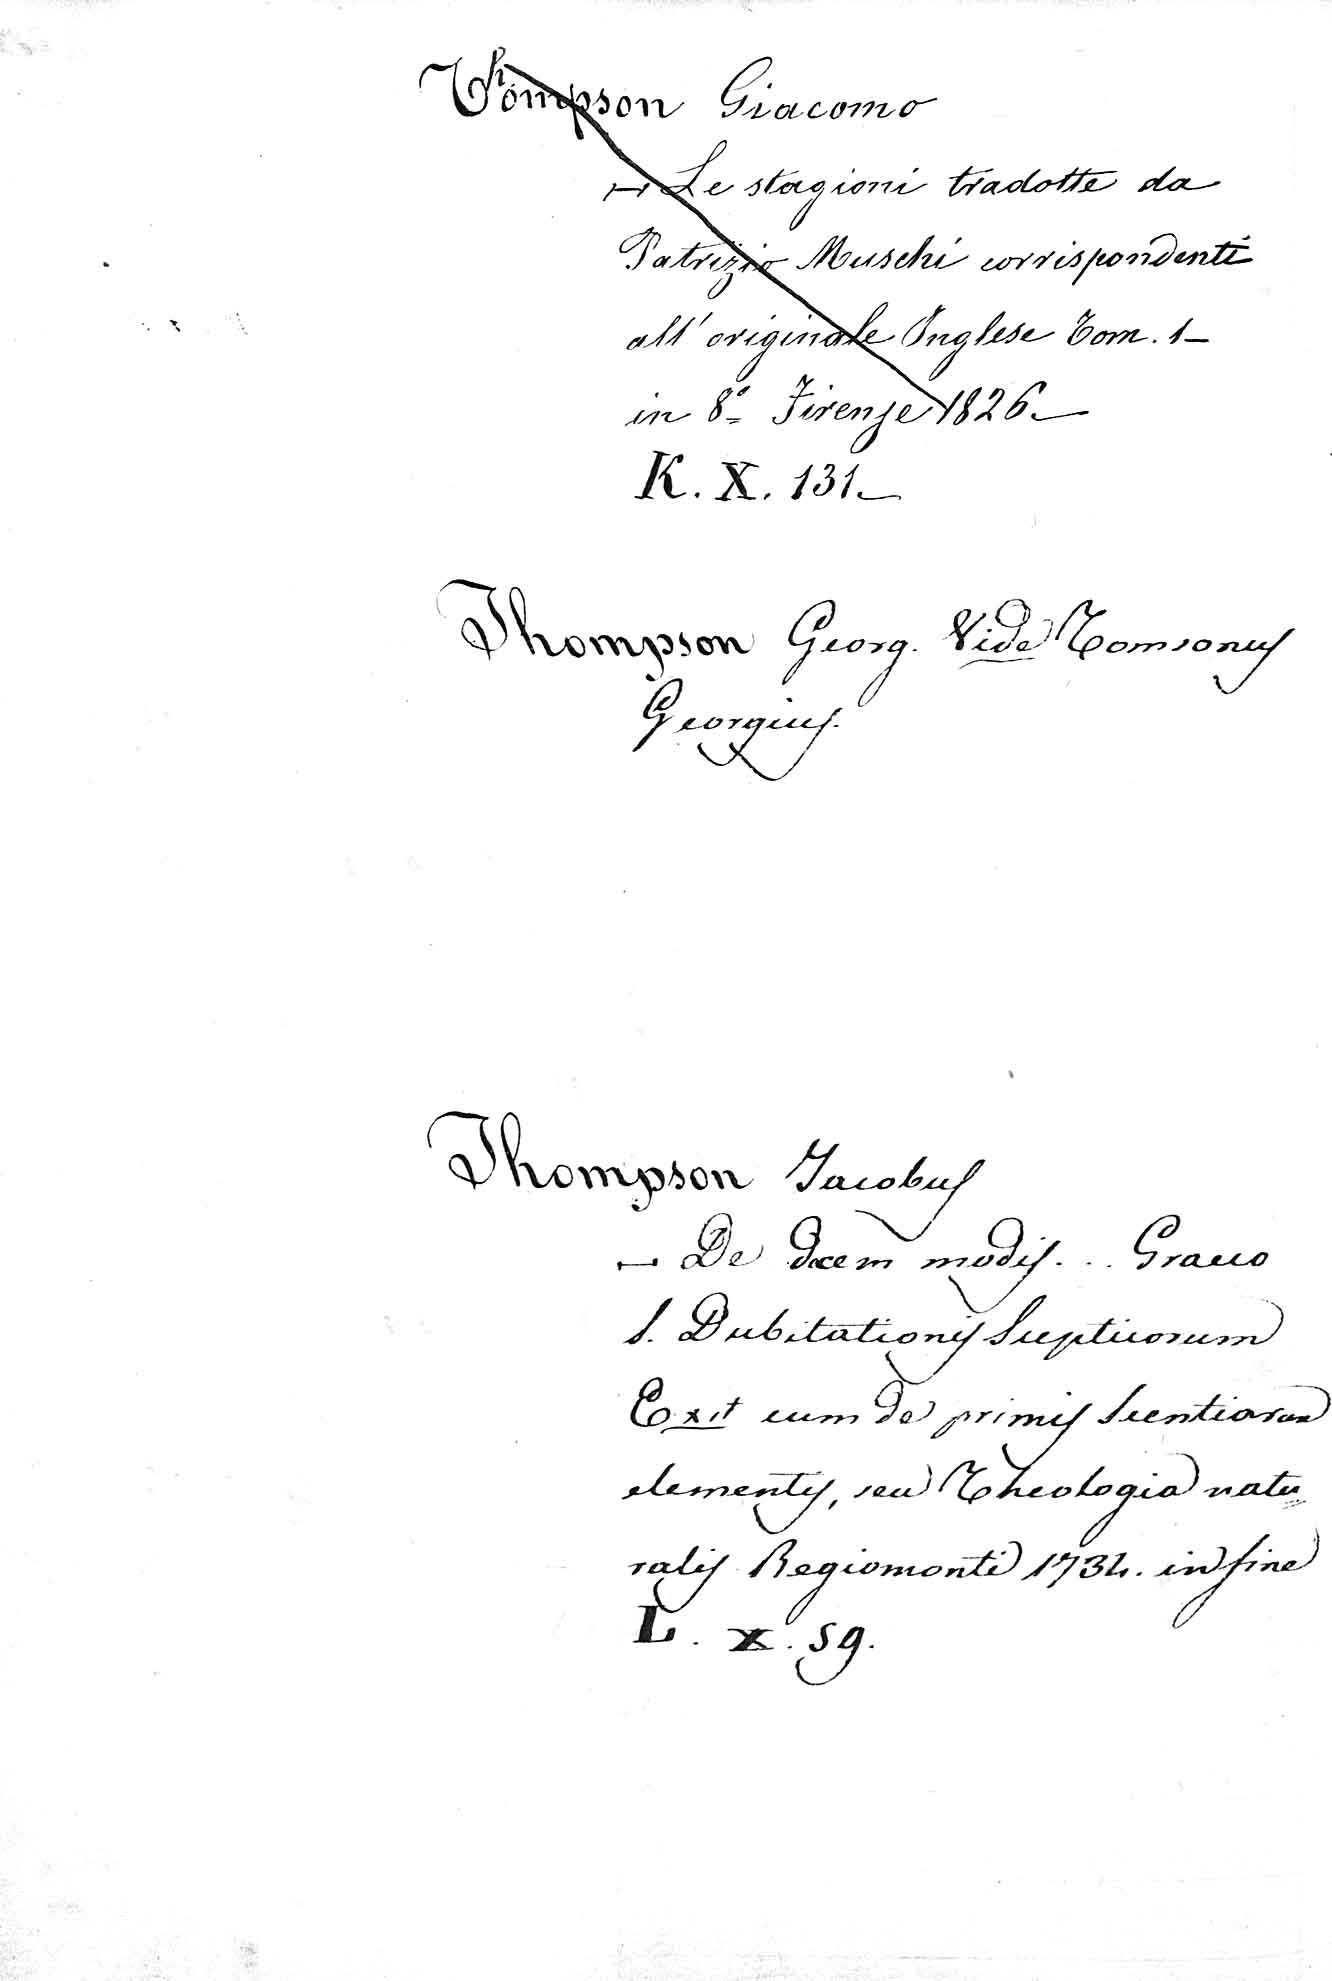 Thompson Giacomo
— Le stagioni tradotte da
Patrizio Muschi corrispondenti
all' originale Inglese Tom. 1 —
in 8.º Firenze 1826 —
K. X. 131 —
Thompson Georg. Vide Tomsonus
Georgius.
Thompson Jacobus
— De decem modis . . . Graeco
s. Dubitationis Scepticorum
Exit cum de primis scientiarum
elementis, seu Theologia natu
ralis Regiomonti 1734. in fine
L. X. 59.